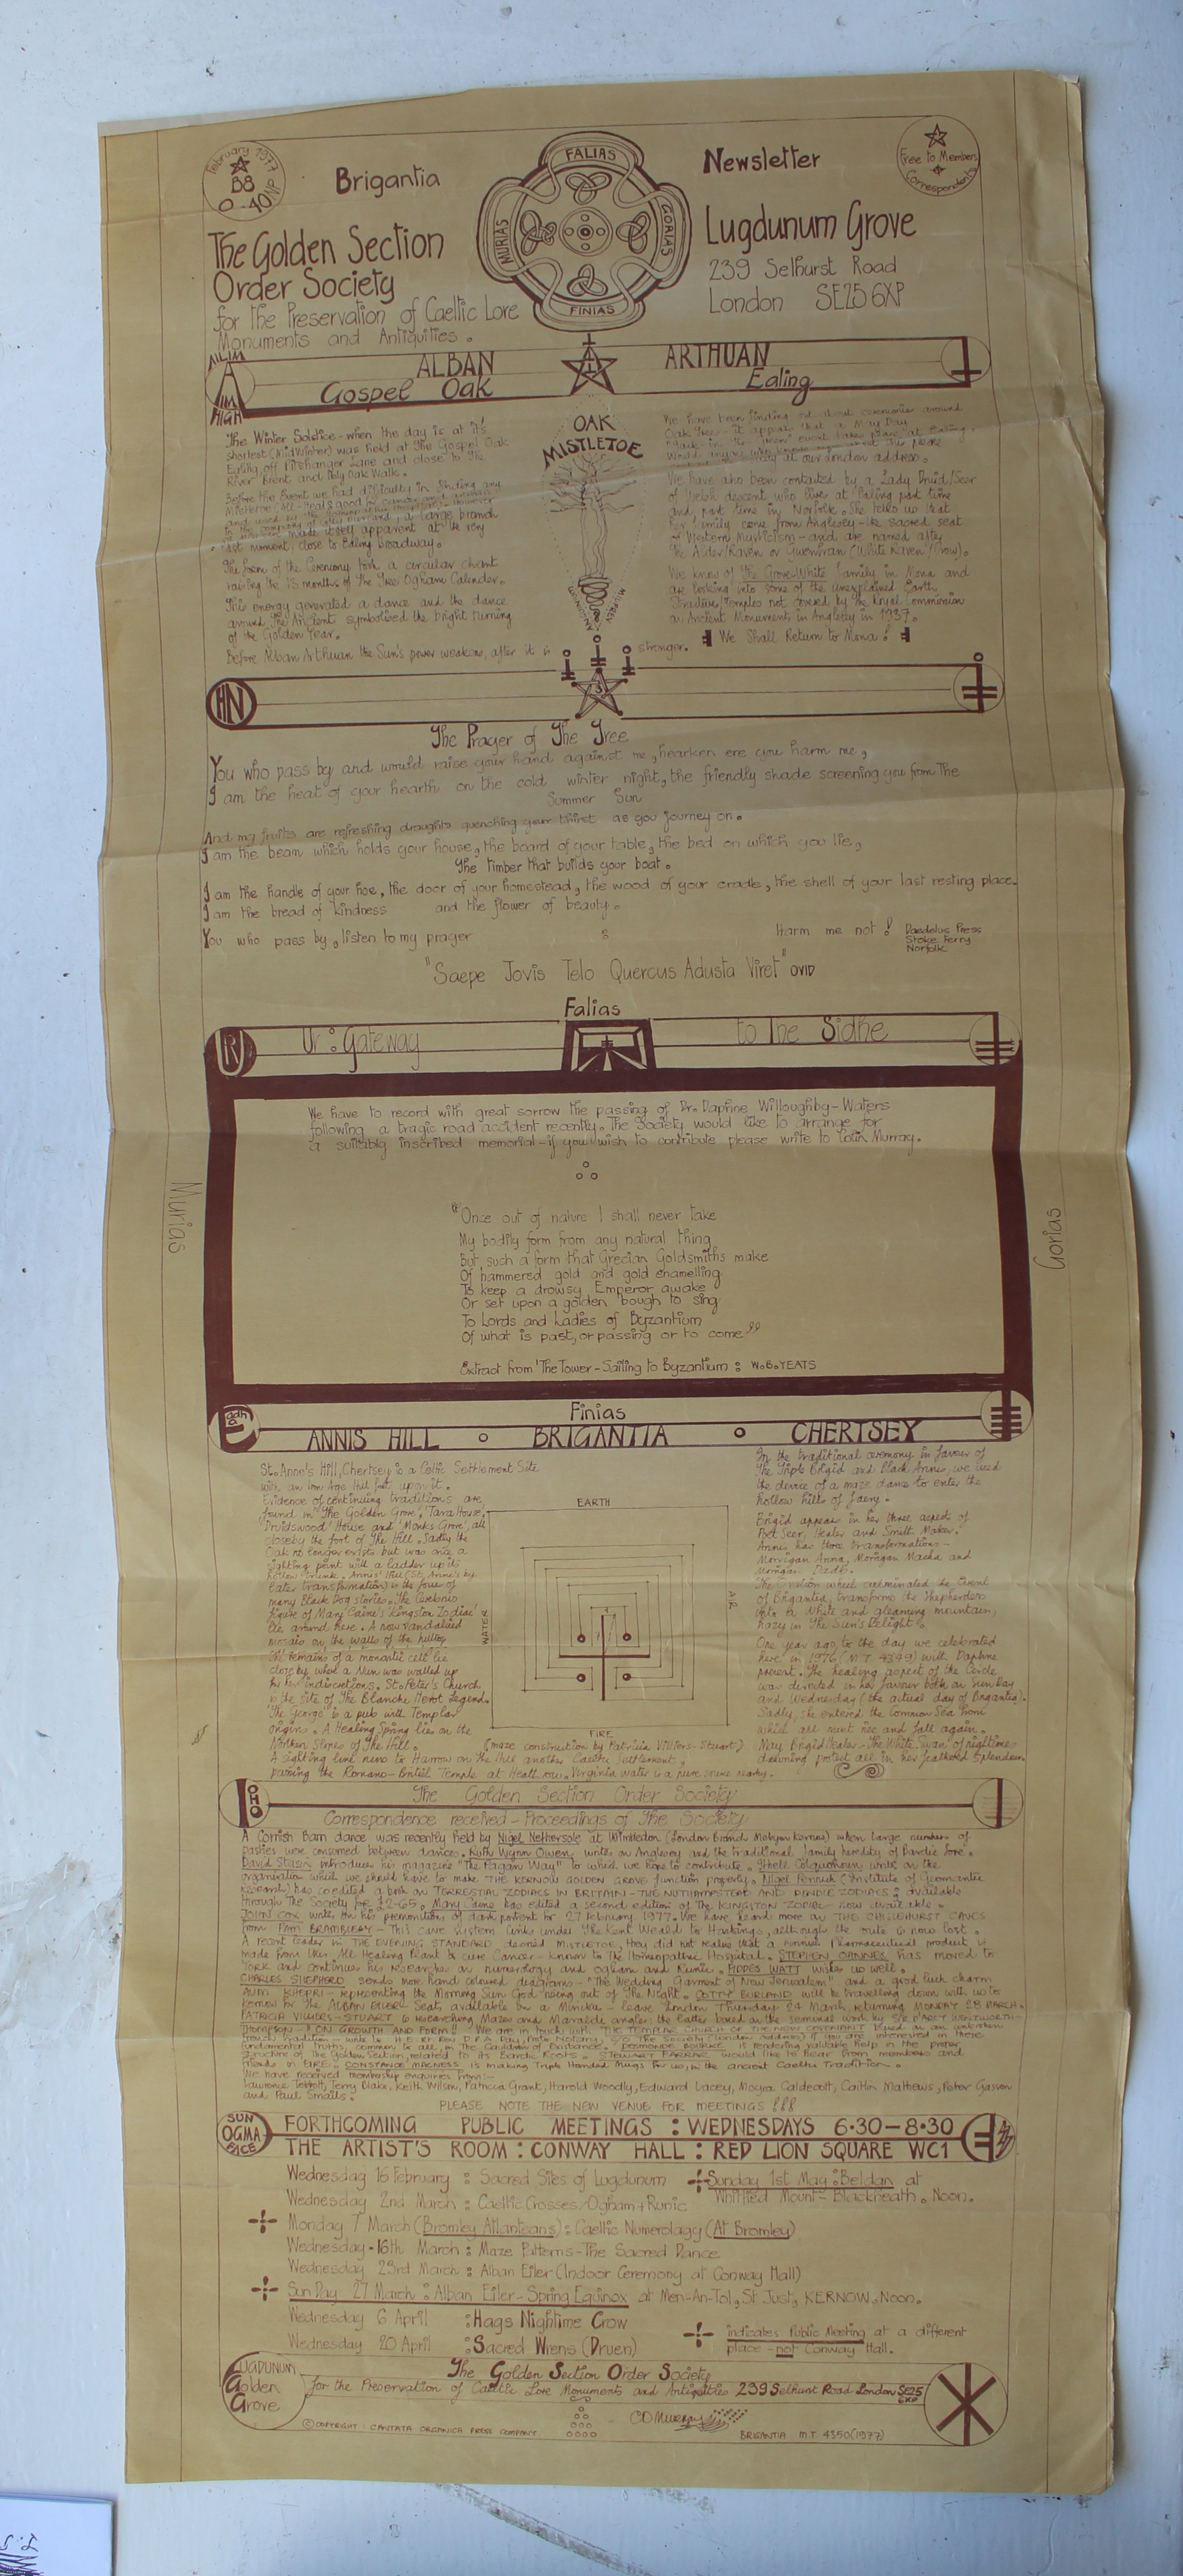 February 1977
B8
0.40NP
Brigantia
FALIAS
GORIAS
FINIAS
MURIAS
Newsletter
Free to Members
Correspondents
The Golden Section
Order Society
for the Preservation of Caeltic Lore
Monuments and Antiquities.
Lugdunum Grove
239 Selhurst Road
London SE25 6XP
AILIM
AIM
HIGH
ALBAN ARTHUAN
Gospel Oak Ealing
The Winter Solstice - when the day is at it's
shortest (Midwinter) was held at The Gospel Oak
Ealing, off Pitshanger Lane and close to the
River Brent and Holy Oak Walk.
Before the Event we had difficulty in finding any
Mistletoe, All-Heal
made itself apparent at the very
last moment, close to Ealing Broadway.
The form of the Ceremony took a circular chant
the 13 months of the Tree Ogham Calender.
This energy generated a dance and the dance
around The Ancient symbolised the bright turning
of the Golden Year.
Before Alban Arthuan the Sun's power weakens, after it is stronger.
OAK
MISTLETOE
We have been finding out about ceremonies around
Oak Trees - it appears that a May Day
event takes place at Ealing.
at our London address.
We have also been contacted by a Lady Druid/Seer
of Welsh descent who lives at Ealing part time
and part time in Norfolk. She tells us that
her family come from Anglesey - the sacred seat
of Western Mysticism - and are named after
the Alder/Raven or Gwenfran (White Raven/Crow).
We know of the Grove-White family in Mona and
are looking into some of the unexplained Earth
Structures/Temples not covered by the Royal Commission
on Ancient Monuments in Anglesey in 1937.
We Shall Return to Mona!
The Prayer of The Tree
You who pass by and would raise your hand against me, hearken ere you harm me,
I am the heat of your hearth on the cold winter night, the friendly shade screening you from the
Summer Sun
And my fruits are refreshing draughts quenching your thirst as you journey on.
I am the beam which holds your house, the board of your table, the bed on which you lie,
The timber that builds your boat.
I am the handle of your hoe, the door of your homestead, the wood of your cradle, the shell of your last resting place.
I am the bread of kindness and the flower of beauty.
You who pass by, listen to my prayer : Harm me not!
Daedelus Press
Stoke Ferry
Norfolk
"Saepe Jovis Telo Quercus Adusta Viret" OVID
Falias
UR
Ur : Gateway to The Sidhe
We have to record with great sorrow the passing of Dr. Daphne Willoughby-Waters
following a tragic road accident recently. The Society would like to arrange for
a suitably inscribed memorial - if you wish to contribute please write to Colin Murray.
Murias
Gorias
"Once out of nature I shall never take
My bodily form from any natural thing
But such a form that Grecian Goldsmiths make
Of hammered gold and gold enamelling
To keep a drowsy Emperor awake
Or set upon a golden bough to sing
To Lords and Ladies of Byzantium
Of what is past, or passing or to come"
Extract from 'The Tower - Sailing to Byzantium : W.B.YEATS
Finias
Eadha
ANNIS HILL o BRIGANTIA o CHERTSEY
St. Anne's Hill, Chertsey is a Celtic Settlement Site
with an Iron Age Hill fort upon it.
Evidence of continuing traditions are
found in 'The Golden Grove', 'Tara House',
'Druidswood' House and 'Monks Grove', all
closeby the foot of The Hill. Sadly the
Oak no longer exists but was once a
sighting point with a ladder up its
hollow trunk. Annis' Hill (St. Anne's by
later transformation) is the focus of
many Black Dog stories. The Cerberus
figure of Mary Caine's 'Kingston Zodiac'
lie around here. A now vandalised
mosaic on the walls of the hilltop.
The remains of a monastic cell lie
close by where a Nun was walled up
for her indiscretions. St. Peter's Church
is the site of The Blanche Heriot Legend.
'The George' is a pub with Templar
origins. A Healing Spring lies on the
Northern Slopes of The Hill.
A sighting line runs to Harrow on the Hill another Caeltic Settlement,
passing the Romano-British Temple at Heathrow. Virginia Water is a pure source nearby.
EARTH
AIR
WATER
FIRE
(maze construction by Patricia Villiers-Stuart)
In the traditional ceremony in favour of
the Triple Brigid and Black Annis, we used
the device of a maze dance to enter the
hollow hills of faery.
Brigid appears in her three aspects of
Poet Seer, Healer and Smith Maker.
Annis has three transformations -
Morrigan Anna, Morrigan Macha and
Morrigan Badb.
The Oration which culminated the Event
of Brigantia, transforms the Shepherdess
into a White and gleaming mountain,
hazy in The Sun's Delight.
One year ago, to the day we celebrated
here in 1976 (M.T. 4349) with Daphne
present. The healing aspect of the Circle
was directed in her favour both on Sun Day
and Wednesday (the actual day of Brigantia).
Sadly, she entered the Common Sea from
which all must rise and fall again.
May Brigid Healer - The White Swan of nightime
dawning protect all in her feathered Splendour.
OHO
The Golden Section Order Society
Correspondence received - Proceedings of The Society
A Cornish Barn dance was recently held by Nigel Nethersole at Wimbledon (London Branch Mebyon Kernow) when large numbers of
pasties were consumed between dances. Ruth Wynn Owen writes on Anglesey and the traditional family heredity of Bardic lore.
David Stasen introduces his magazine "The Pagan Way" to which we hope to contribute. Ithell Colquhoun writes on the
organisation which we should have to make THE KERNOW GOLDEN GROVE function properly. Nigel Pennick (Institute of Geomantic
Research) has co-edited a book on TERRESTIAL ZODIACS IN BRITAIN - THE NUTHAMPSTEAD AND PENDLE ZODIACS : available
through The Society for £2-65. Mary Caine has edited a second edition of The KINGSTON ZODIAC - now available.
JOHN COX writes on his premonitions of dark portent for 27 February 1977. We have heard more on THE CHISLEHURST CAVES
from PAM BRAMBLEBY - This cave system links under The Kent Weald to Hastings, although the route is now lost.
A recent leader in THE EVENING STANDARD decried MISTLETOE, they did not realise that a Pharmaceutical product is
made from this All Healing Plant to cure Cancer - known to The Homeopathic Hospital. STEPHEN has moved to
York and continues his researches on numerology and ogham and Runic. FIDDES WATT wishes us well.
CHARLES SHEPHERD sends more hand coloured diagrams - "The Wedding Garment of New Jerusalem" and a good luck charm
KHEPRI - representing the Morning Sun God rising out of The Night. COTTY BURLAND will be travelling down with us to
Kernow for the ALBAN EILER - Seats available in a Minibus - leave London Thursday 24 March, returning MONDAY 28 MARCH.
PATRICIA VILLIERS-STUART is researching Mazes and Marvable angles: the latter based on the seminal work by SIR D'ARCY WENTWORTH-
THOMPSON - "ON GROWTH AND FORM". We are in touch with THE TEMPLAR CHURCH OF THE NEW COVENANT
The Society (London Address) if you are interested in these
fundamental truths, common to all, in The Cauldron of DESMONDE BOURKE is rendering valuable help in the proper
structure of The Golden Section, related to its Bardic Roots. STEWART FARRAR would like to hear from members and
friends in EIRE. CONSTANCE is making Triple Handed Mugs for us, in the ancient Caeltic Tradition.
We have received membership enquiries from:-
Lawrence Tebbott, Terry Blake, Keith Wilson, Patricia Grant, Harold Woodly, Edward Lacey, Moyra Caldecott, Caitlin Mathews, Peter Gasson
and Paul Smails.
PLEASE NOTE THE NEW VENUE FOR MEETINGS !!!
SUN
OGMA
FACE
FORTHCOMING PUBLIC MEETINGS : WEDNESDAYS 6·30-8·30
THE ARTIST'S ROOM : CONWAY HALL : RED LION SQUARE WC1
Wednesday 16 February : Sacred Sites of Lugdunum
Wednesday 2nd March : Caeltic Crosses/Ogham + Runic
Monday 7 March (Bromley Atlanteans) : Caeltic Numerology (At Bromley)
Wednesday 16th March : Maze Patterns - The Sacred Dance
Wednesday 23rd March : Alban Eiler (Indoor Ceremony at Conway Hall)
Sun Day 27 March : Alban Eiler - Spring Equinox at Men-An-Tol, St Just, KERNOW, Noon.
Wednesday 6 April : Hags Nightime Crow
Wednesday 20 April : Sacred Wrens (Druen)
Sunday 1st May : Beldan at
Whitfied Mount - Blackheath. Noon.
indicates Public Meeting at a different
place - not Conway Hall.
LUGDUNUM
Golden
Grove
The Golden Section Order Society
for the Preservation of Caeltic Lore Monuments and Antiquities 239 Selhurst Road London SE25
6XP
© COPYRIGHT : CANTATA ORGANICA PRESS COMPANY.
CD Murray
BRIGANTIA M.T. 4350 (1977)